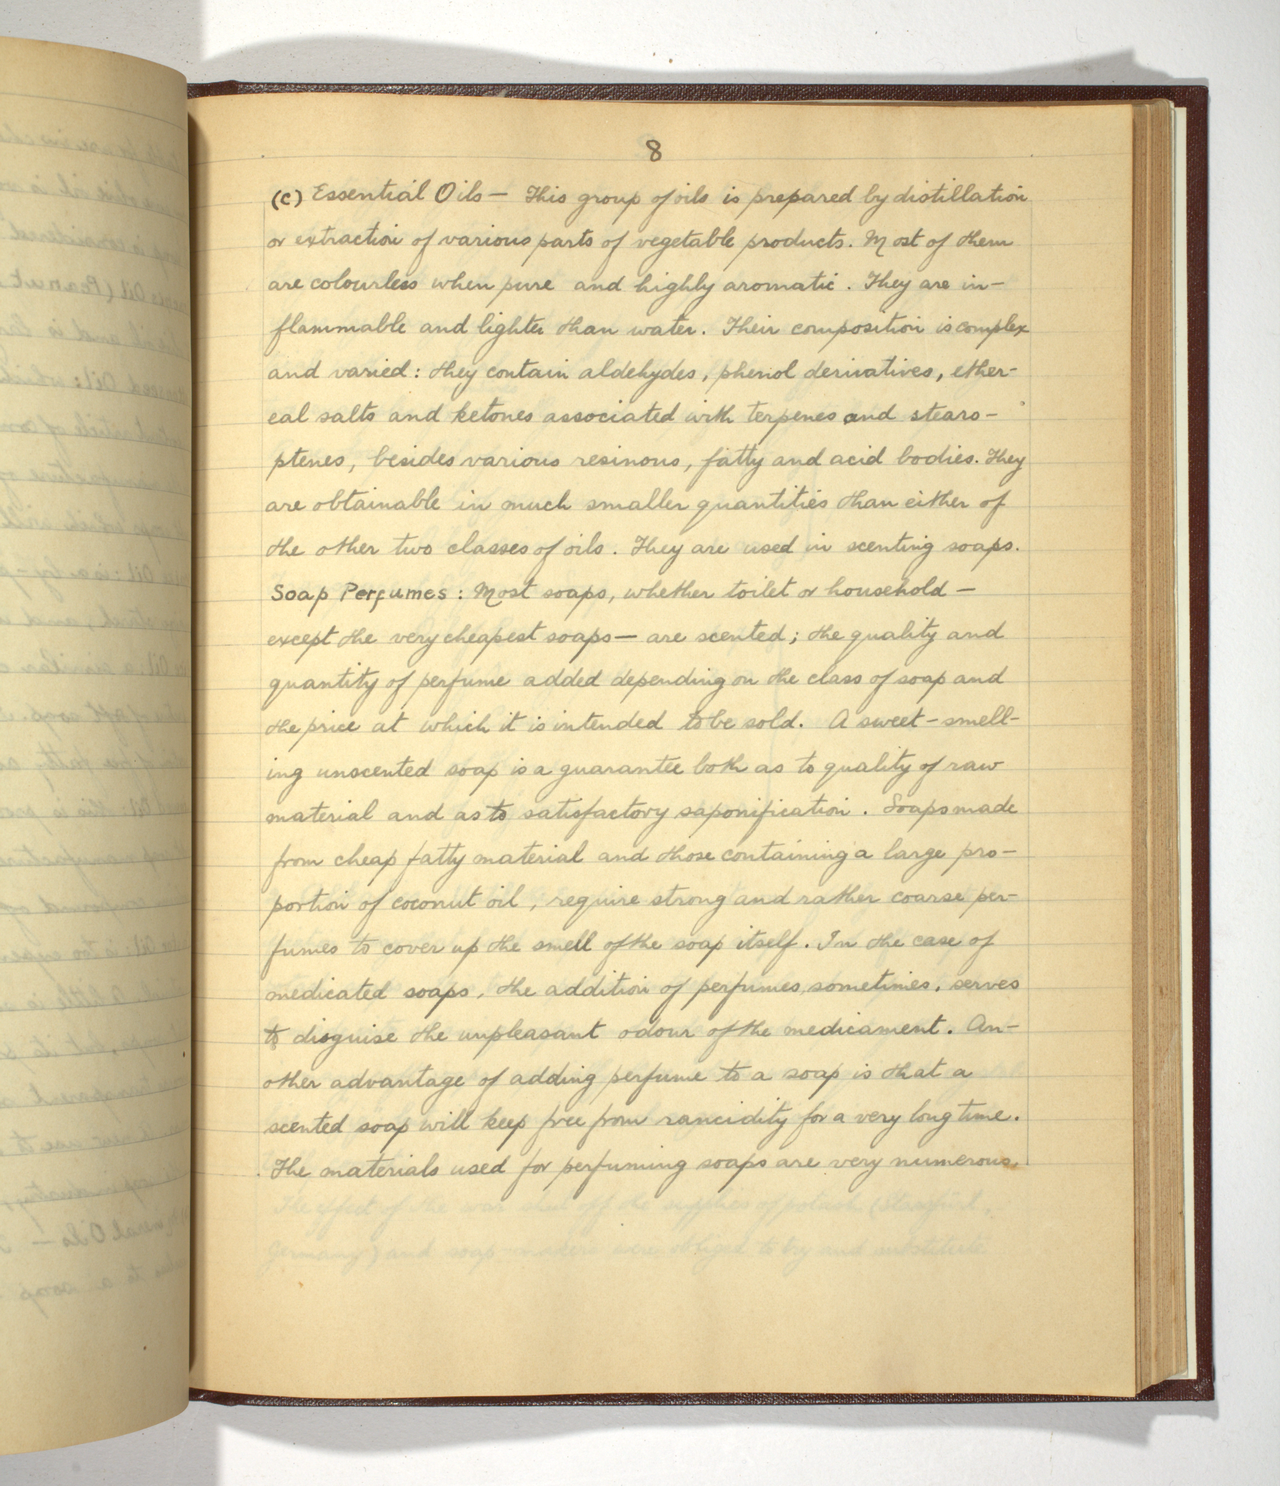 8
(C) Essential Oils — This group of oils is prepared by distillation
or extraction of various parts of vegetable products. Most of them
are colourless when pure and highly aromatic. They are in-
flammable and lighter than water. Their composition is complex
and varied: they contain aldehydes, phenol derivatives, ether-
eal salts and ketones associated with terpenes and stearo-
ptenes, besides various resinous, fatty and acid bodies. They
are obtainable in much smaller quantities than either of
the other two classes of oils. They are used in scenting soaps.
Soap Perfumes: Most soaps, whether toilet or household —
except the very cheapest soaps — are scented; the quality and
quantity of perfume added depending on the class of soap and
the price at which it is intended to be sold. A sweet-smell-
ing unscented soap is a guarantee both as to quality of raw
material and as to satisfactory saponification. Soaps made
from cheap fatty material and those containing a large pro-
portion of coconut oil, require strong and rather coarse per-
fumes to cover up the smell of the soap itself. In the case of
medicated soaps, the addition of perfumes, sometimes, serves
to disguise the unpleasant odour of the medicament. An-
other advantage of adding perfume to a soap is that a
scented soap will keep free from rancidity for a very long time.
The materials used for perfuming soaps are very numerous.
The effect of the war shut off the supplies of potash (
Germany) and soap makers were obliged to try and substitute
Oil (Peanut